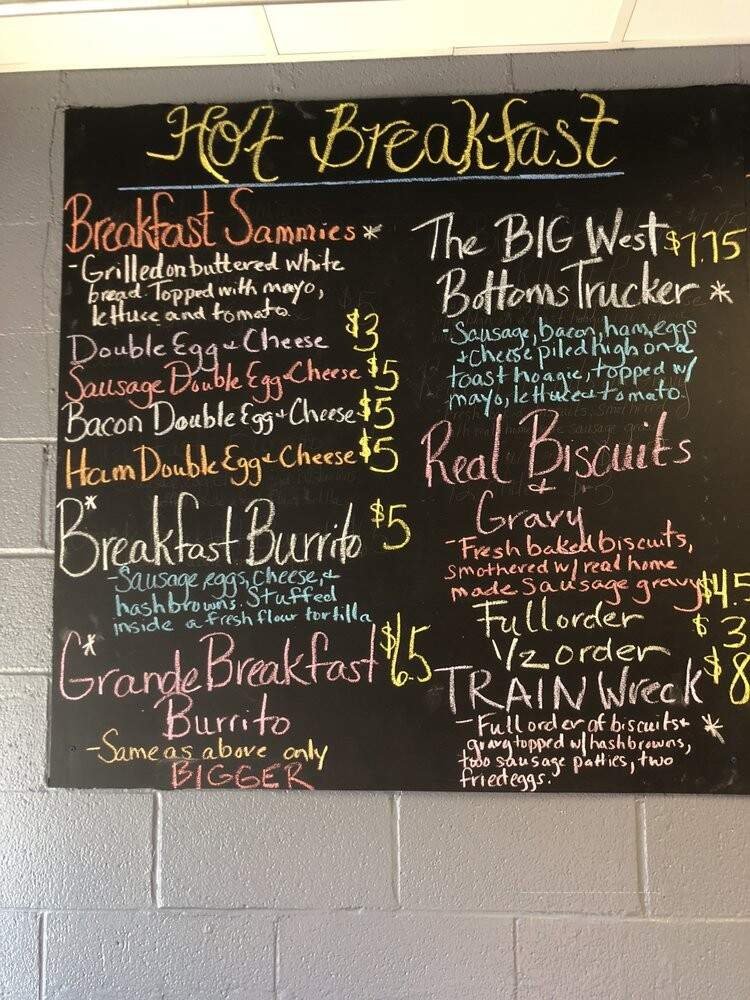 Hot Breakfast
Breakfast Sammies *
- Grilled on buttered white
bread. Topped with mayo,
lettuce and tomato.
Double Egg + Cheese $3
Sausage Double Egg + Cheese $5
Bacon Double Egg + Cheese $5
Ham Double Egg + Cheese $5
* Breakfast Burrito $5
- Sausage, eggs, cheese, +
hashbrowns. Stuffed
inside a fresh flour tortilla
* Grande Breakfast $6.5
Burrito
- Same as above only
BIGGER
The BIG West $7.75
Bottoms Trucker *
- Sausage, bacon, ham, eggs
+ cheese piled high on a
toast hoagie, topped w/
mayo, lettuce + tomato
Real Biscuits
+
Gravy
- Fresh baked biscuits,
smothered w/ real home
made sausage gravy $4.5
Full order $3
1/2 order
TRAIN Wreck $8
- Full order of biscuits + *
gravy topped w/ hashbrowns,
two sausage patties, two
fried eggs.